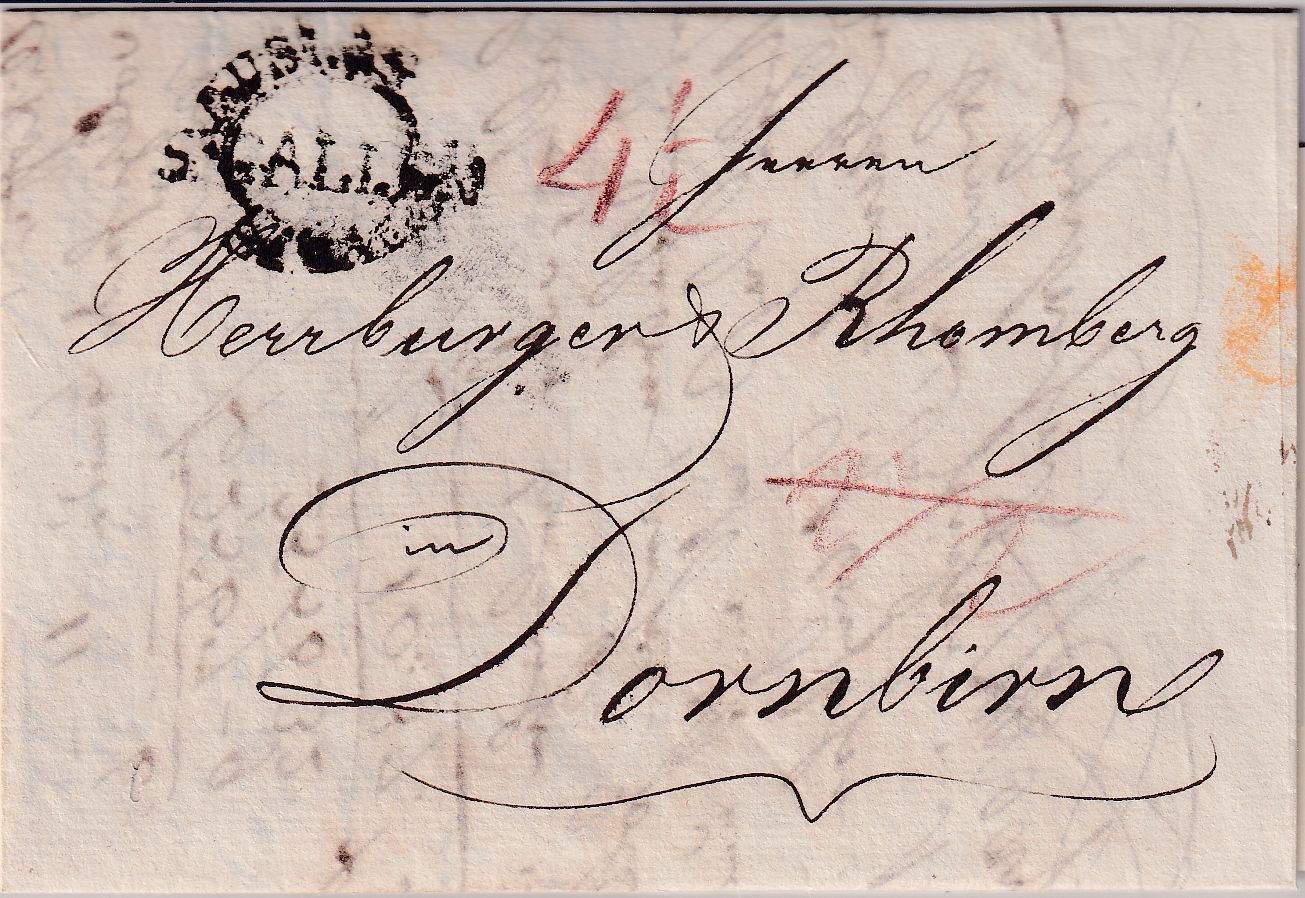 St GALLEN
4½
Herren
Herrburger & Rhomberg
in
Dornbirn